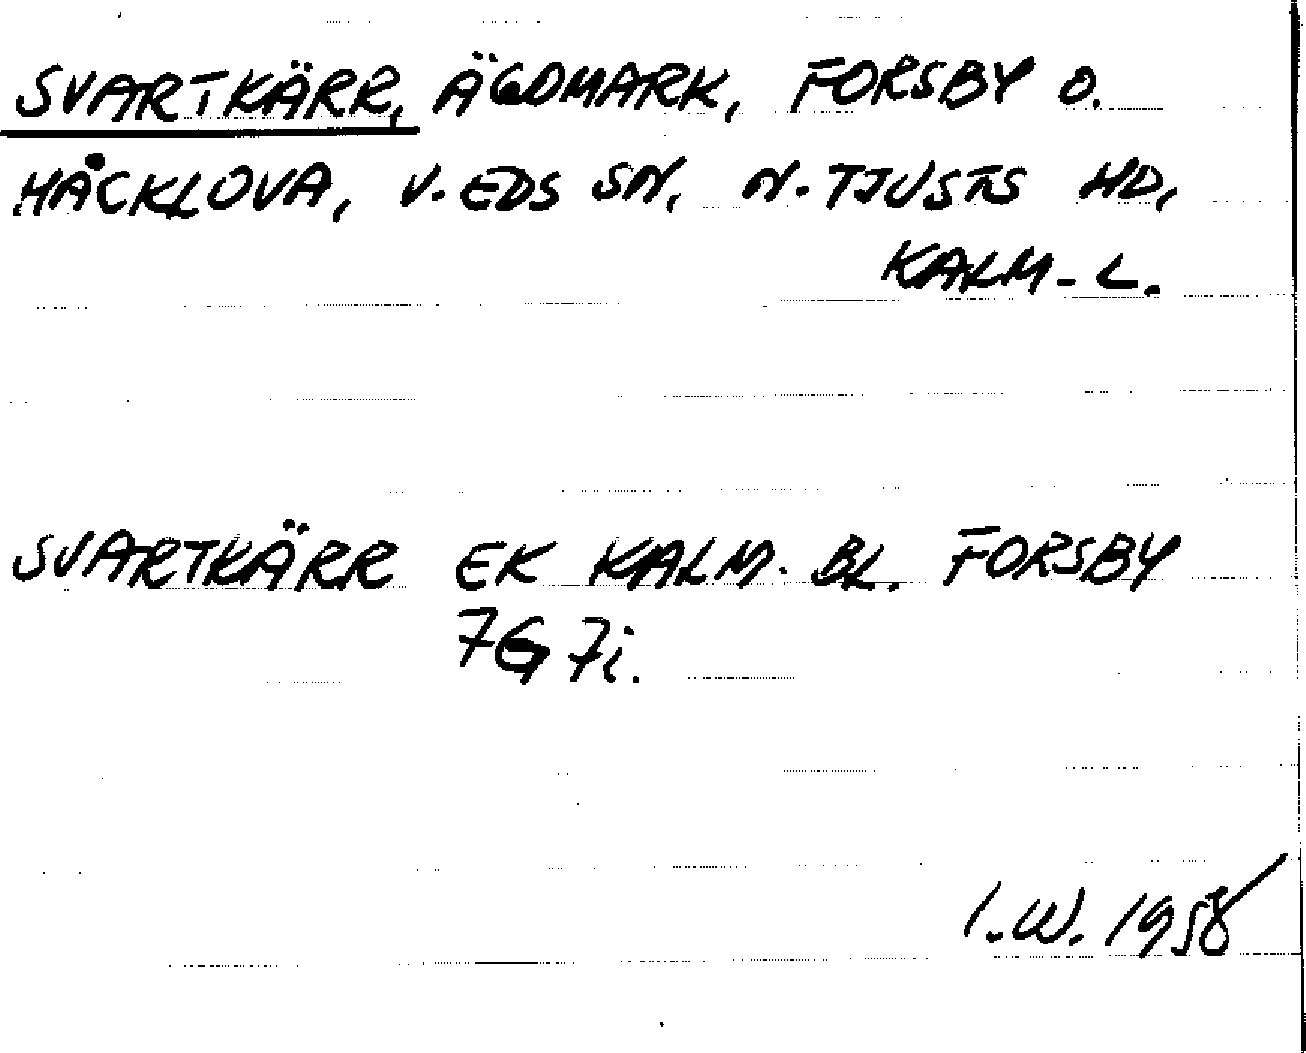 SVARTKÄRR, ÄGDMARK, FORSBY O.
HÅCKLOVA, V. EDS SN, N. TJUSTS HD,
KALM-L.
SVARTKÄRR EK KALM. BL. FORSBY
7G 7i.
I.W. 1958